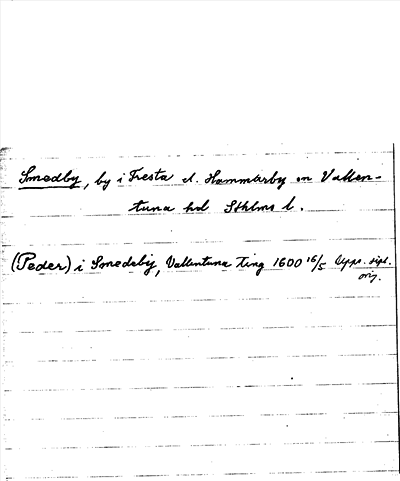 Smedby, by i Fresta el. Hammarby sn Vallen-
tuna hd Sthlms l.
(Peder) i Smedsbÿ, Vallentuna ting 1600 16/5 Upps. dipl.
orig.